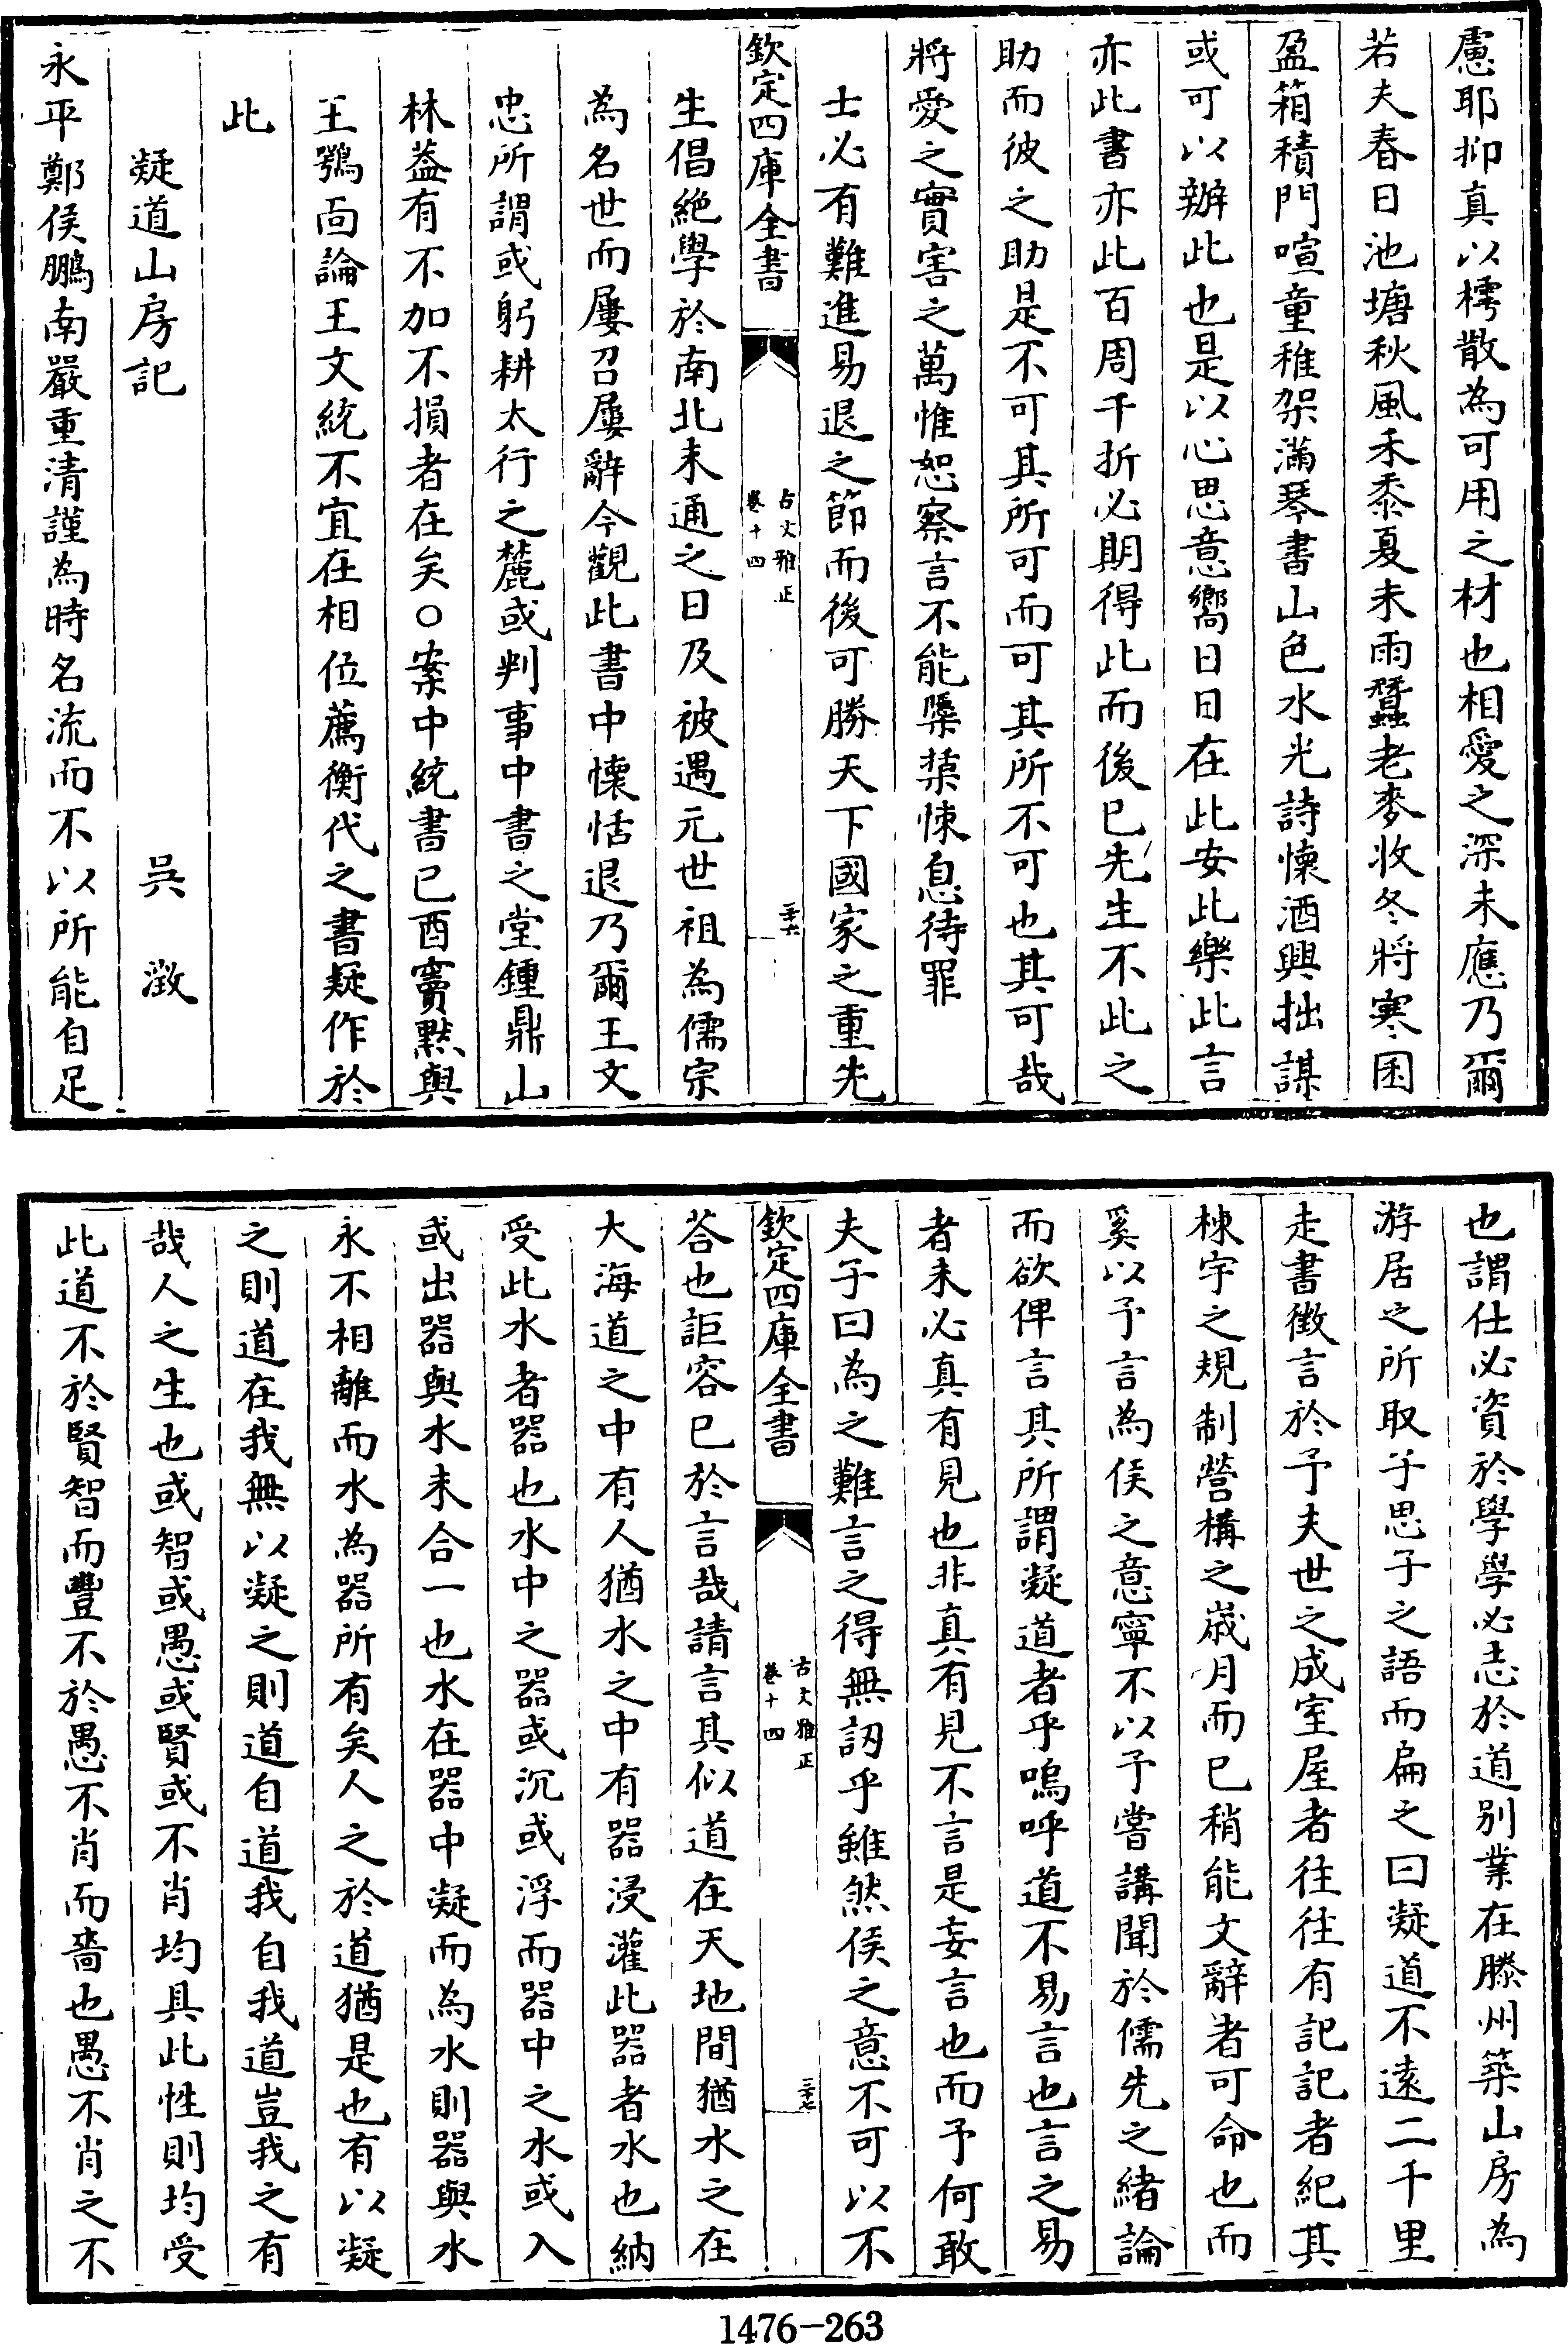 慮耶抑真以樗散為可用之材也相愛之深未應乃爾
若夫春日池塘秋風禾黍夏未雨蠶老麥收冬將寒囷
盈箱積門喧童稚架滿琴書山色水光詩懷酒興拙謀
或可以辦此也是以心思意嚮日日在此安此樂此言
亦此書亦此百周千折必期得此而後已先生不此之
助而彼之助是不可其所可而可其所不可也其可哉
將愛之實害之萬惟恕察言不能槩葉悚息待罪
士必有難進易退之節而後可勝天下國家之重先
欽定四庫全書
古文雅正
卷十四
三十六
生倡絶學於南北未通之日及被遇元世祖為儒宗
為名世而屢召屢辭今觀此書中懐恬退乃爾王文
忠所謂或躬耕太行之麓或判事中書之堂鍾鼎山
林葢有不加不損者在矣○案中統書已酉竇黙與
王鶚面論王文統不宜在相位薦衡代之書疑作於
此
凝道山房記
吳澂
永平鄭侯鵬南嚴重清謹為時名流而不以所能自足
也謂仕必資於學學必志於道别業在滕州築山房為
游居之所取子思子之語而扁之曰凝道不逺二千里
走書徵言於予夫世之成室屋者往往有記記者紀其
棟宇之規制營構之嵗月而已稍能文辭者可命也而
奚以予言為侯之意寧不以予嘗講聞於儒先之緒論
而欲俾言其所謂凝道者乎嗚呼道不易言也言之易
者未必真有見也非真有見不言是妄言也而予何敢
夫子曰為之難言之得無訒乎雖然侯之意不可以不
欽定四庫全書
古文雅正
卷十四
三十七
荅也詎容已於言哉請言其似道在天地間猶水之在
大海道之中有人猶水之中有器浸灌此器者水也納
受此水者器也水中之器或沉或浮而器中之水或入
或出器與水未合一也水在器中凝而為水則器與水
永不相離而水為器所有矣人之於道猶是也有以凝
之則道在我無以凝之則道自道我自我道豈我之有
哉人之生也或智或愚或賢或不肖均具此性則均受
此道不於賢智而豐不於愚不肖而嗇也愚不肖之不
1476-263